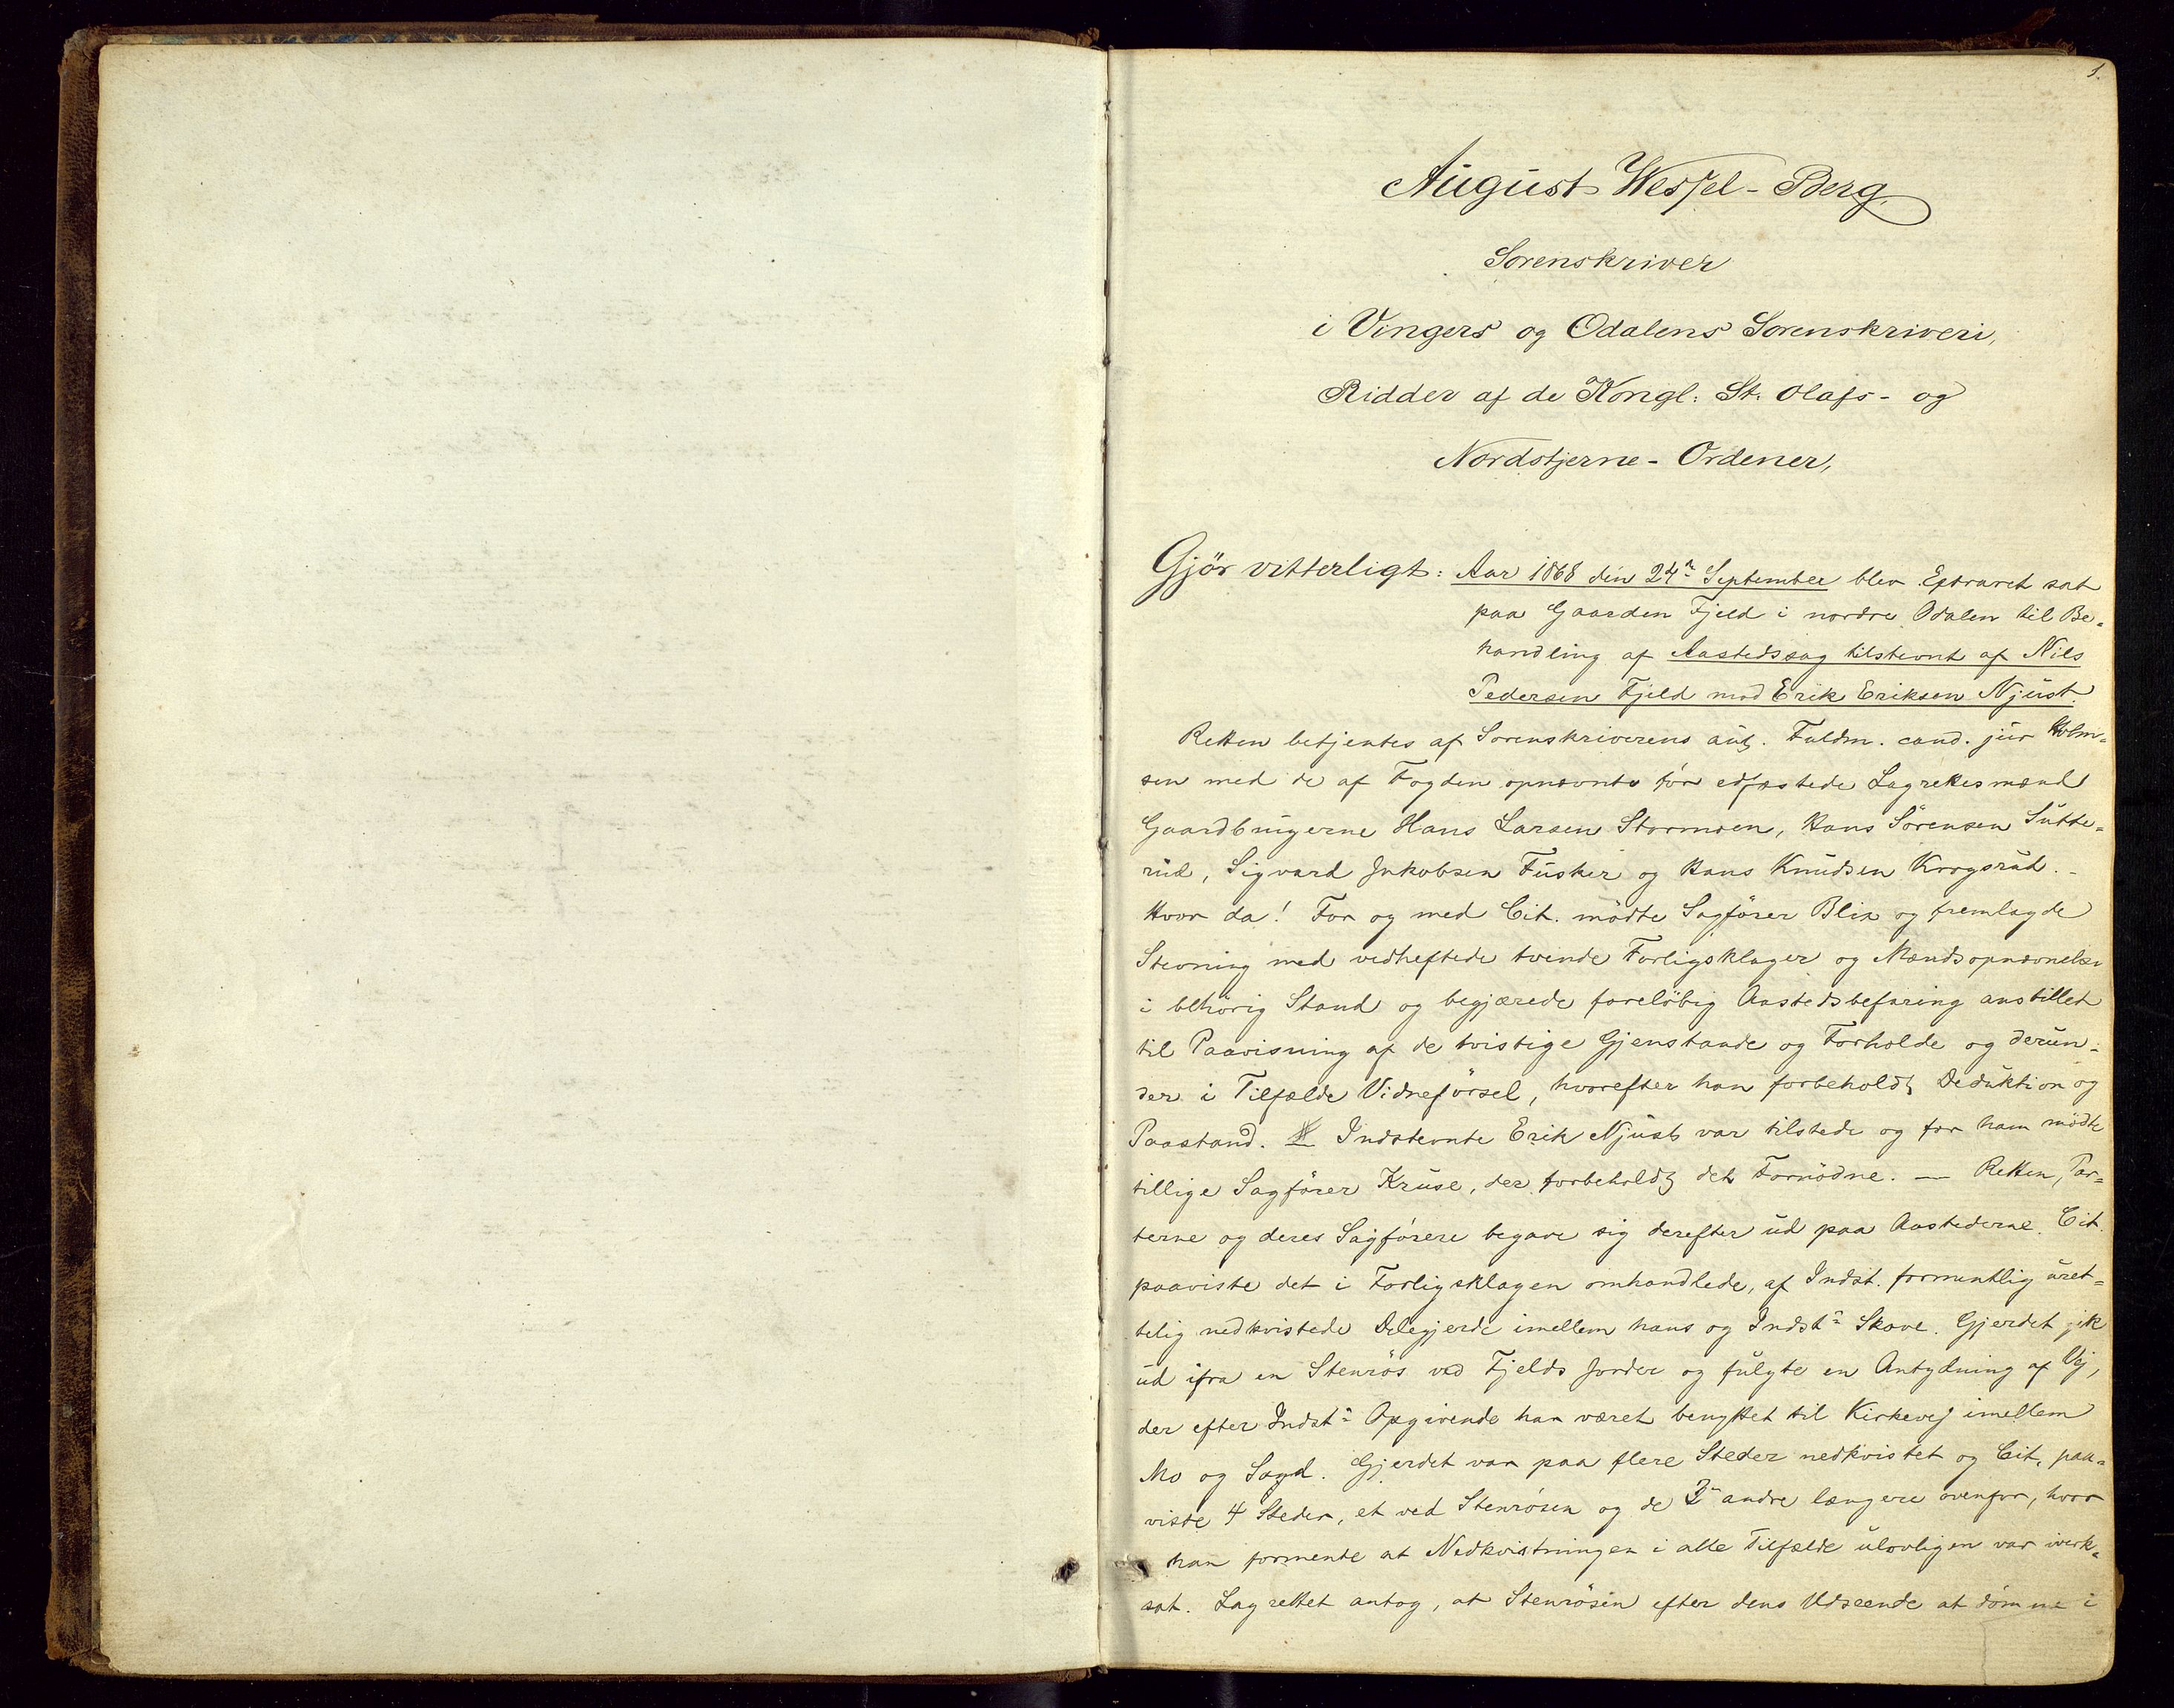 1.
August Wessel-Berg
Sorenskriver
i Vingers og Odalens Sorenskriveri,
Ridder af de Kongl: St: Olafs- og
Nordstjerne-Ordener,
Gjör vitterligt: Aar 1868 den 24n September blev Extraret sat
paa Gaarden Fjeld i nordre Odalen til Be-
handling af Aastedssag tilstevnt af Nils
Pedersen Fjeld mod Erik Eriksen Njust.
Retten betjentes af Sorenskriverens aut. Fuldm. cand. jur Holm-
sen med de af Fogden opnævnte før edfæstede Lagrettesmænd
Gaardbrugerne Hans Larsen Stormoen, Hans Sörensen Sutte-
rud, Sigvard Jakobsen Fusker og Hans Knudsen Krogsrud. -
Hvor da! For og med Cit. mödte Sagförer Blix og fremlagde
Stevning med vedheftede tvende Forligsklager og Mandsopnævnelse
i behörig Stand og begjærede foreløbig Aastedsbefaring anstillet
til Paavisning af de tvistige Gjenstande og Forholde og derun-
der i Tilfælde Vidneførsel, hvorefter han forbeholdt Deduktion og
Paastand. Indstevnte Erik Njust var tilstede og for ham mödte
tillige Sagfører Kruse, der forbeholdt det Fornödne. — Retten, Par-
terne og deres Sagførere begave sig derefter ud paa Aastederne. Cit.
paaviste det i Forligsklagen omhandlede, af Indst. formentlig uret-
telig nedkvistede Delegjerde imellem hans og Indst.s Skove. Gjerdet gik
ud ifra en Stenrös ved Fjelds Jorder og fulgte en Antydning af Vej,
der efter Indst.s Opgivende har været benyttet til Kirkevej imellem
Mo og Sand. Gjerdet var paa flere Steder nedkvistet og Cit. paa-
viste 4 Steder, et ved Stenrösen og de 3 andre længere ovenfor, hvor
han formente at Nedkvistningen i alle Tilfælde ulovligen var iverk-
sat. Lagrettet antog, at Stenrösen efter dens Udseende at dömme i